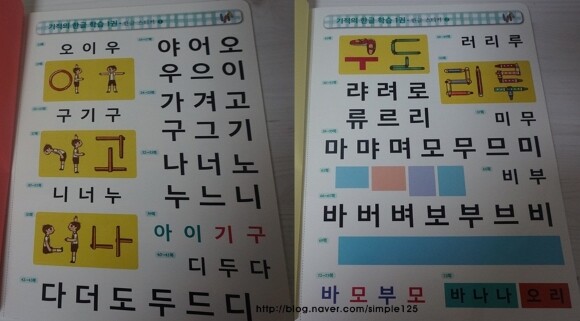 기적의 한글 학습 1권
오 이 우
야 어 오
우 으 이
구 기 구
가 겨 고
구 그 기
고
니 너 누
나 너 노
누 느 니
나
아 이 기 구
디 두 다
다 더 도 두 드 디
기적의 한글 학습 1권
구 도
러 리 루
랴 려 로
류 르 리
미 무
마 먀 며 모 무 므 미
비 부
바 버 벼 보 부 브 비
바 모 부 모
바 나 나 오 리
http://blog.naver.com/simple125